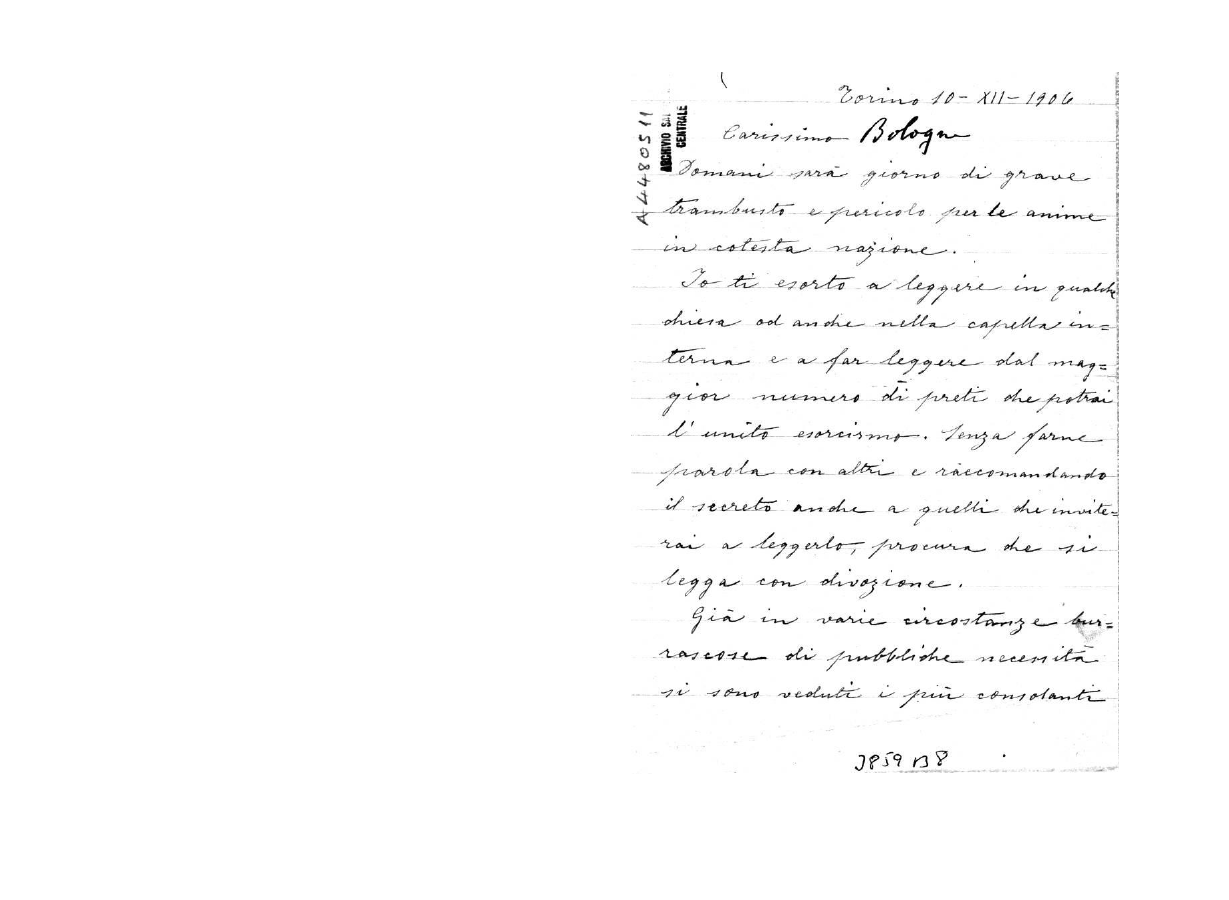 Torino 10 - XII - 1906
Carissimo Bologna
Domani sarà giorno di grave
trambusto e pericolo per le anime
in cotesta nazione.
Io ti esorto a leggere in qualche
chiesa od anche nella capella in=
terna e a far leggere dal mag=
gior numero di preti che potrai
l'unito esorcismo. Senza farne
parola con altri e raccomandando
il secreto anche a quelli che invite=
rai a leggerlo, procura che si
legga con divozione.
Già in varie circostanze bur=
rascose di pubbliche necessità
si sono veduti i più consolanti
A4480511
ARCHIVIO SAL
CENTRALE
3859 B8